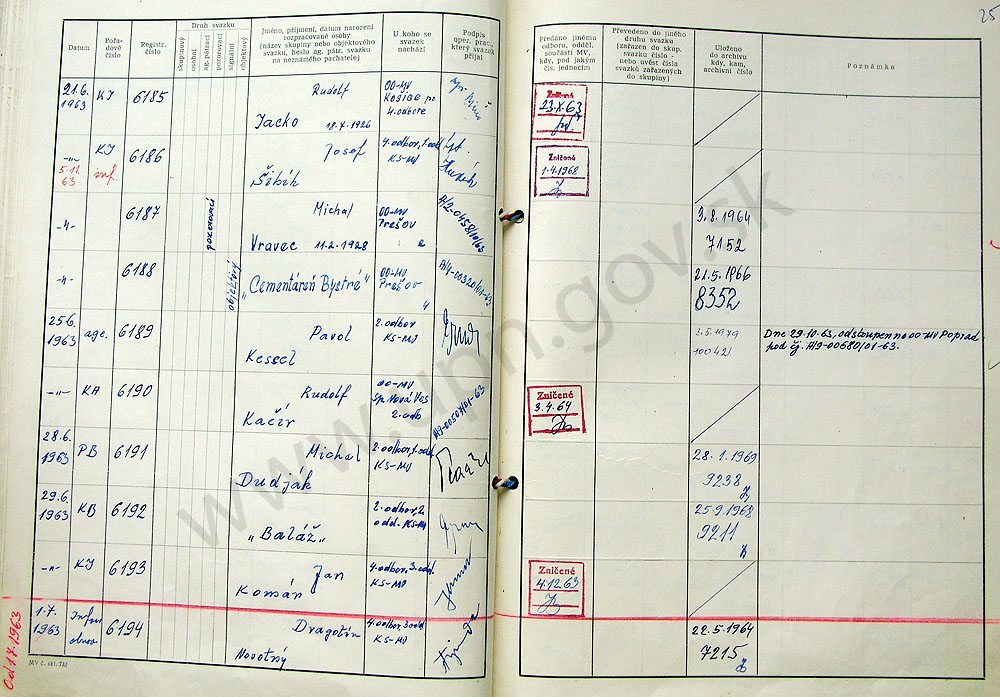 25
Datum
Pořadové číslo
Registr. číslo
Druh svazku
skupinový
osobní
ag. pátrací
pozorovací
signální
objektový
Jméno, příjmení, datum narození
rozpracované osoby
(název skupiny nebo objektového
svazku, heslo ag. pátr. svazku
na neznámého pachatele)
U koho se
svazek
nachází
Podpis
oper. prac.,
který svazek
přijal
Předáno jinému
odboru, odděl.
součásti MV,
kdy, pod jakým
čís. jednacím
Převedeno do jiného
druhu svazku
(zařazen do skup.
svazku číslo -
nebo uvést čísla
svazků zařazených
do skupiny)
Uloženo
do archivu
kdy, kam,
archivní číslo
Poznámka
21.6.
1963
KI
6185
Rudolf
Jacko 18.7.1926
OO-MV
Košice po
4. odbore
Zničené
23.X.63
-"-
5.11
63
KI
inf.
6186
Josef
Šibík
4. odbor, 1. odd
KS-MV
Zničené
1.4.1968
-"-
6187
pozorovací
Michal
Vravec 11.2.1928
OO-MV
Prešov
A/2-0458/10/63
3.8.1964
7152
-"-
6188
objektový
"Cementáreň Bystré"
OO-MV
Prešov
A/9-00320/01-63
21.5.1966
8352
25.6.
1963
age.
6189
Pavol
Kessel
2. odbor
KS-MV
3.5.1979
10042
Dne 29.10.63, odstoupen na OO-MV Poprad
pod čj. A/9-00680/01-63.
-"-
KA
6190
Rudolf
Kačír
OO-MV
Sp. Nová Ves
2. odb
A/9-00507/01-63
Zničené
3.4.64
28.6.
1963
PB
6191
Michal
Dudják
2. odbor, 1. odd
KS-MV
28.1.1969
9238
29.6.
1963
KB
6192
"Baláž"
2. odbor, 2
odd. KS-MV
25.9.1968
9211
-"-
KI
6193
Jan
Komán
4. odbor, 3. odd.
KS-MV
Zničené
4.12.63
Od 1.7.1963
1.7.
1963
6194
Dragotin
Novotný
4. odbor 3 odd
KS-MV
22.5.1964
7215
MV č. skl. 732
www.upn.gov.sk